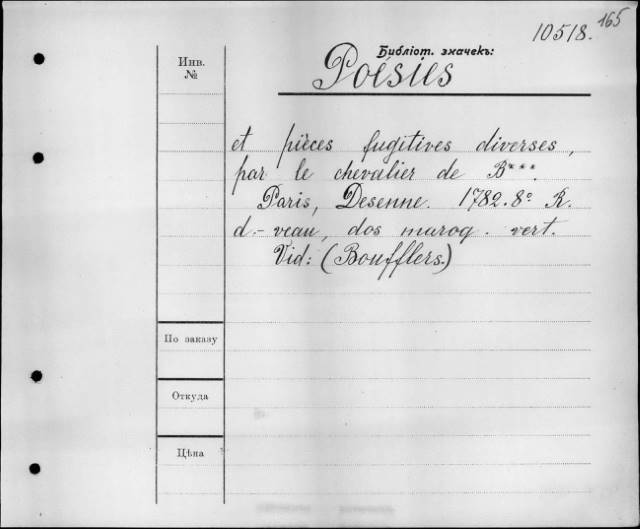 10518. 165
Инв.
№
Библіот. значекъ:
Poésies
et pièces fugitives diverses,
par le chevalier de B***.
Paris, Desenne. 1782. 8° R.
d.-veau, dos maroq. vert.
Vid: (Boufflers.)
По заказу
Откуда
Цѣна